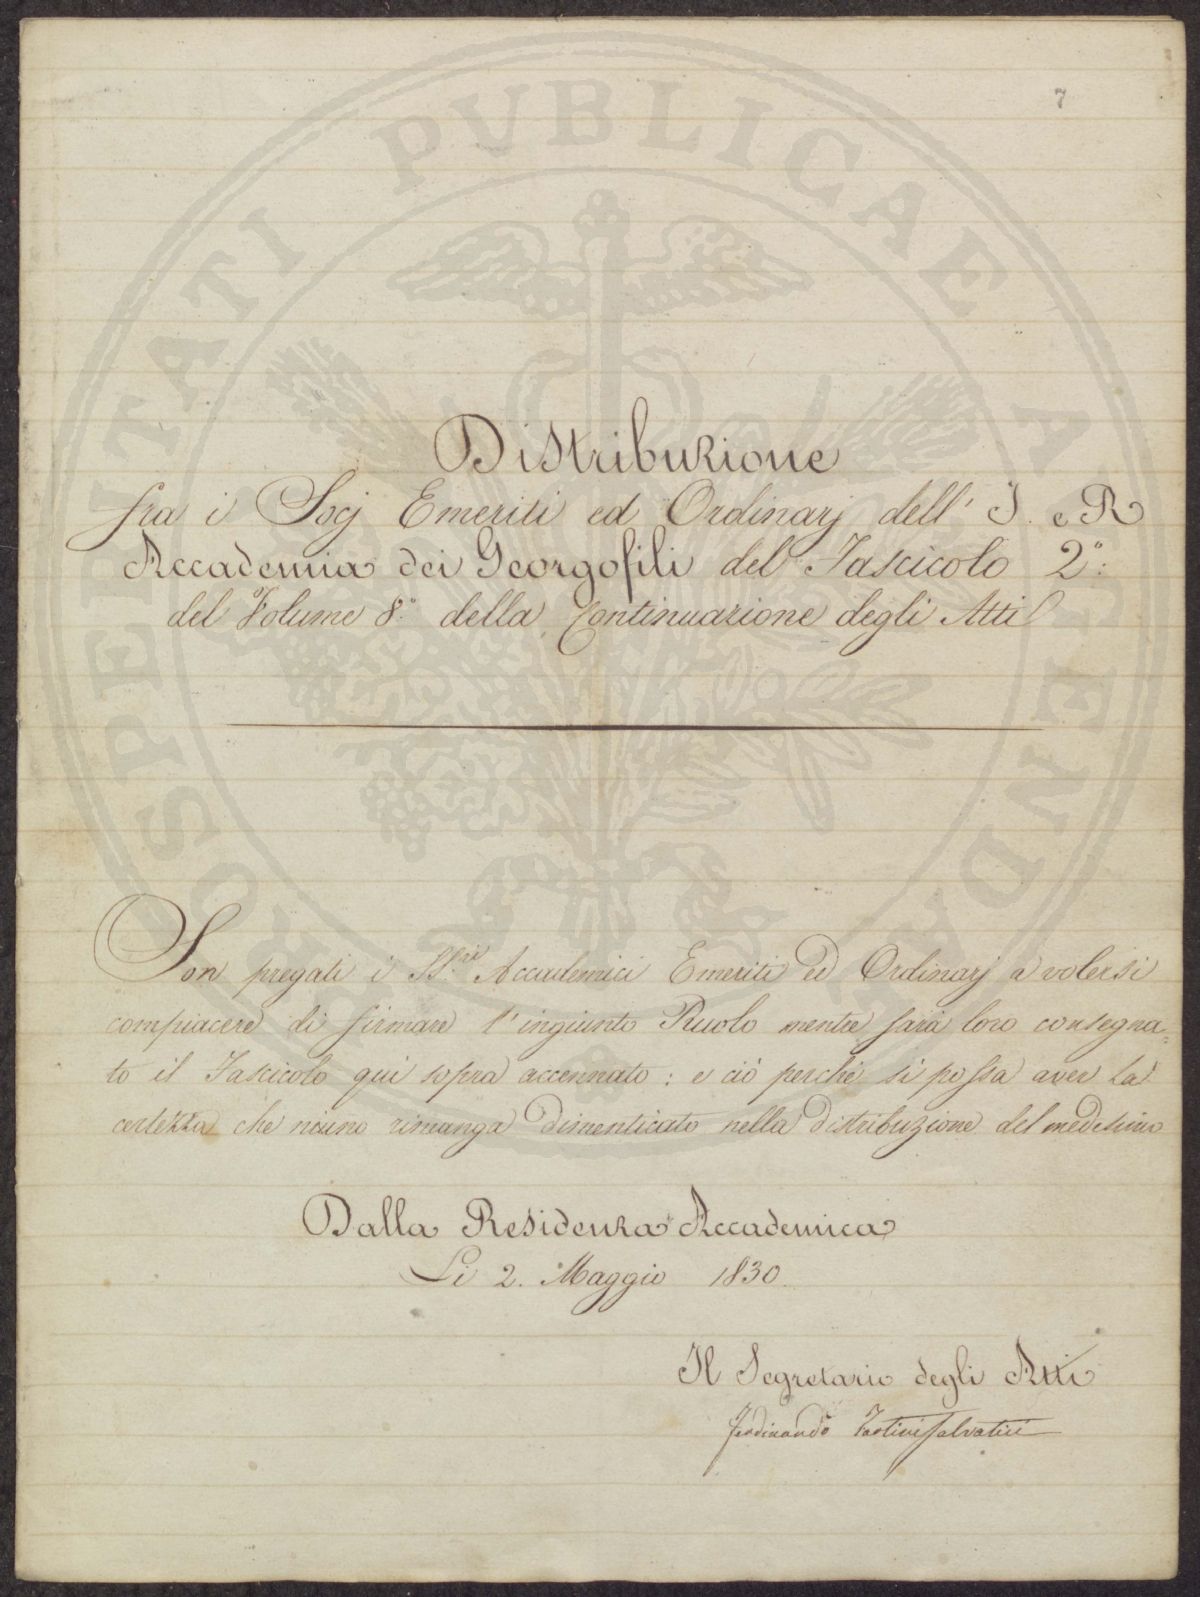 7
PROSPERITATI PUBLICAE AUGENDAE
Distribuzione
fra i Socj Emeriti ed Ordinarj dell' I. e R
Accademia dei Georgofili del Fascicolo 2°:
del Volume 8° della Continuazione degli Atti
Son pregati i SS.ri Accademici Emeriti ed Ordinarj a volersi
compiacere di firmare l'ingiunto Ruolo mentre sarà loro consegna=
to il Fascicolo qui sopra accennato: e ciò perchè si possa aver la
certezza che niuno rimanga dimenticato nella distribuzione del medesimo
Dalla Residenza Accademica
Li 2. Maggio 1830.
Il Segretario degli Atti
Ferdinando Tartini Salvatici